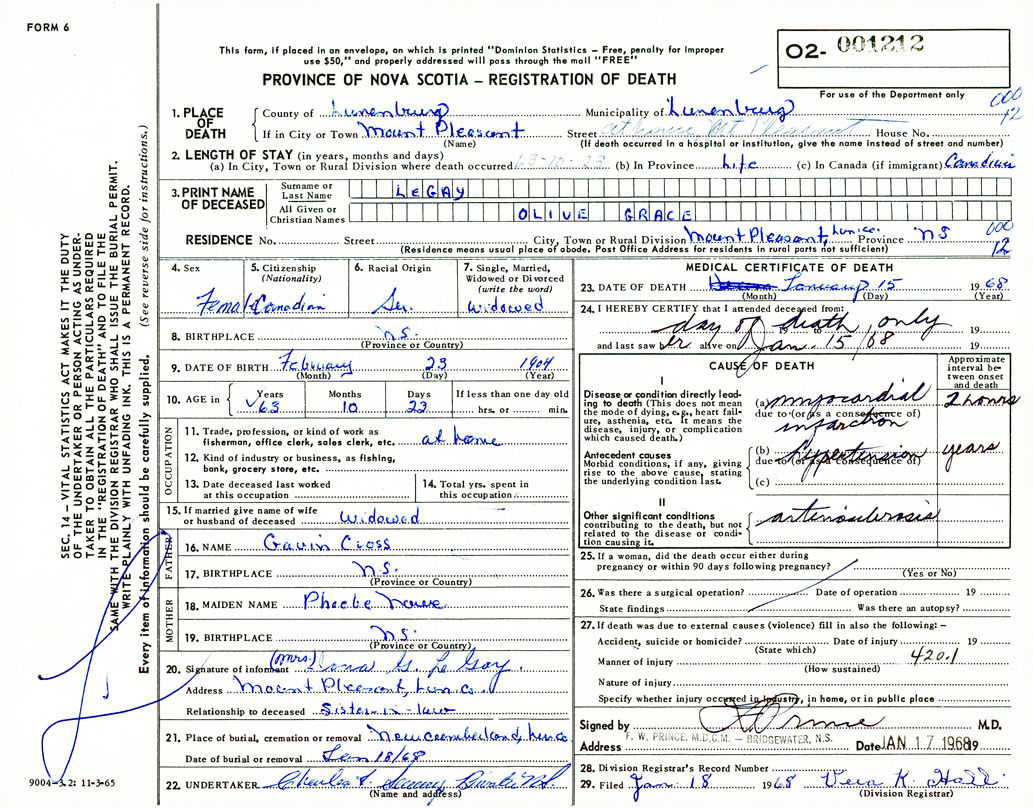 FORM 6
This form, if placed in an envelope, on which is printed "Dominion Statistics – Free, penalty for improper
use $50," and properly addressed will pass through the mail "FREE"
PROVINCE OF NOVA SCOTIA – REGISTRATION OF DEATH
O2- 001212
For use of the Department only
000
12
1. PLACE OF DEATH
County of Lunenburg Municipality of Lunenburg
If in City or Town Mount Pleasant Street at home Mt Pleasant House No.
(Name) (If death occurred in a hospital or institution, give the name instead of street and number)
2. LENGTH OF STAY (in years, months and days)
(a) In City, Town or Rural Division where death occurred 63-10-23 (b) In Province Life (c) In Canada (if immigrant) Canadian
3. PRINT NAME OF DECEASED
Surname or Last Name LEGAY
All Given or Christian Names OLIVE GRACE
RESIDENCE No. Street City, Town or Rural Division Mount Pleasant, Lun. co. Province NS
000
12
(Residence means usual place of abode. Post Office Address for residents in rural parts not sufficient)
4. Sex
Female
5. Citizenship
(Nationality)
Canadian
6. Racial Origin
Ger.
7. Single, Married,
Widowed or Divorced
(write the word)
Widowed
8. BIRTHPLACE N.S.
(Province or Country)
9. DATE OF BIRTH February 23 1904
(Month) (Day) (Year)
10. AGE in
Years 63
Months 10
Days 22
If less than one day old
hrs. or min.
OCCUPATION
11. Trade, profession, or kind of work as
fisherman, office clerk, sales clerk, etc. at home
12. Kind of industry or business, as fishing,
bank, grocery store, etc.
13. Date deceased last worked
at this occupation
14. Total yrs. spent in
this occupation
15. If married give name of wife
or husband of deceased Widowed
FATHER
16. NAME Gavin Cross
17. BIRTHPLACE N.S.
(Province or Country)
MOTHER
18. MAIDEN NAME Phoebe
19. BIRTHPLACE N.S.
(Province or Country)
20. Signature of informant (Mrs) G. Le Gay.
Address Mount Pleasant, Lun. co.
Relationship to deceased Sister-in-law
21. Place of burial, cremation or removal New Cumberland, Lun. co
Date of burial or removal Jan 18/68
22. UNDERTAKER Charles
(Name and address)
MEDICAL CERTIFICATE OF DEATH
23. DATE OF DEATH January 15 1968
(Month) (Day) (Year)
24. I HEREBY CERTIFY that I attended deceased from:
day of death, only
19 to 19
and last saw her alive on Jan. 15/68 19
CAUSE OF DEATH
Approximate
interval be-
tween onset
and death
I
Disease or condition directly lead-
ing to death (This does not mean
the mode of dying, e.g., heart fail-
ure, asthenia, etc. It means the
disease, injury, or complication
which caused death.)
(a) myocardial 2 hours
due to (or as a consequence of)
infarction
Antecedent causes
Morbid conditions, if any, giving
rise to the above cause, stating
the underlying condition last.
(b) hypertension years
due to (or as a consequence of)
(c)
II
Other significant conditions
contributing to the death, but not
related to the disease or condi-
tion causing it.
arteriosclerosis
25. If a woman, did the death occur either during
pregnancy or within 90 days following pregnancy?
(Yes or No)
26. Was there a surgical operation? Date of operation 19
State findings Was there an autopsy?
27. If death was due to external causes (violence) fill in also the following: –
Accident, suicide or homicide? Date of injury 19
(State which)
Manner of injury 420.1
(How sustained)
Nature of injury
Specify whether injury occurred in industry, in home, or in public place
Signed by F W Prince M.D.
F. W. PRINCE, M.D.C.M. – BRIDGEWATER, N.S.
Address Date JAN 17 1968 19
28. Division Registrar's Record Number
29. Filed Jan. 18 1968 Vera K. Hall
(Division Registrar)
SEC. 14 – VITAL STATISTICS ACT MAKES IT THE DUTY
OF THE UNDERTAKER OR PERSON ACTING AS UNDER-
TAKER TO OBTAIN ALL THE PARTICULARS REQUIRED
IN THE "REGISTRATION OF DEATH" AND TO FILE THE
SAME WITH THE DIVISION REGISTRAR WHO SHALL ISSUE THE BURIAL PERMIT.
WRITE PLAINLY WITH UNFADING INK. THIS IS A PERMANENT RECORD.
Every item of information should be carefully supplied. (See reverse side for instructions.)
9004-3.2: 11-3-65